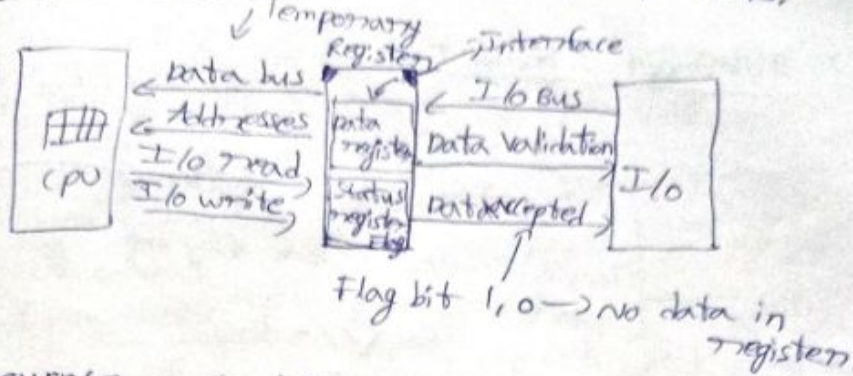 Temporary
Register
Interface
Data bus
Addresses
I/O read
I/O write
CPU
Data
register
Status
register
Flag
I/O Bus
Data Validation
Data Accepted
I/O
Flag bit 1, 0 → No data in
register